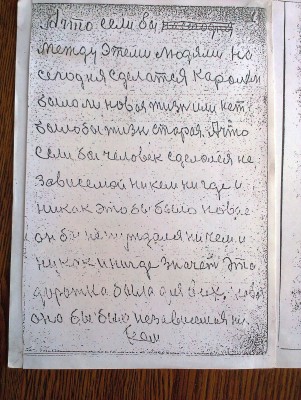 А что если бы
между этели людями на
сегодня сделатся каролем
было ли новая жизн или нет
было бы жизн старая. А что
если бы человек сделолся не
зависемой никем нигде и
никак это бы было новае
он бы не нуждался ни чем и
никак и нигде значет это
дорожка была для всех,
оно бы был независемая ни
кем